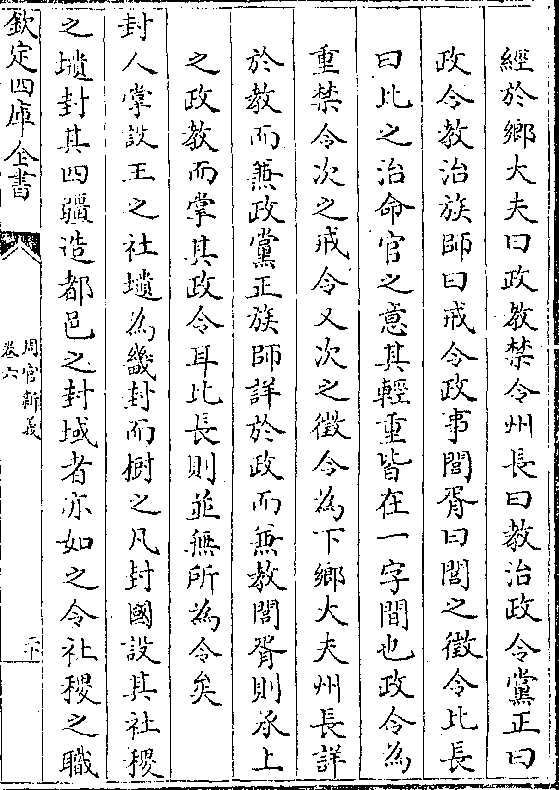 經於鄉大夫曰政教禁令州長曰教治政令黨正曰
政令教治族師曰戒令政事閭胥曰閭之徵令比長
曰比之治命官之意其輕重皆在一字間也政令為
重禁令次之戒令又次之徵令為下鄉大夫州長詳
於教而兼政黨正族師詳於政而兼教閭胥則承上
之政教而掌其政令耳比長則並無所為令矣
封人掌設王之社壝為畿封而樹之凡封國設其社稷
之壝封其四疆造都邑之封域者亦如之令社稷之職
欽定四庫全書
周官新義
卷六